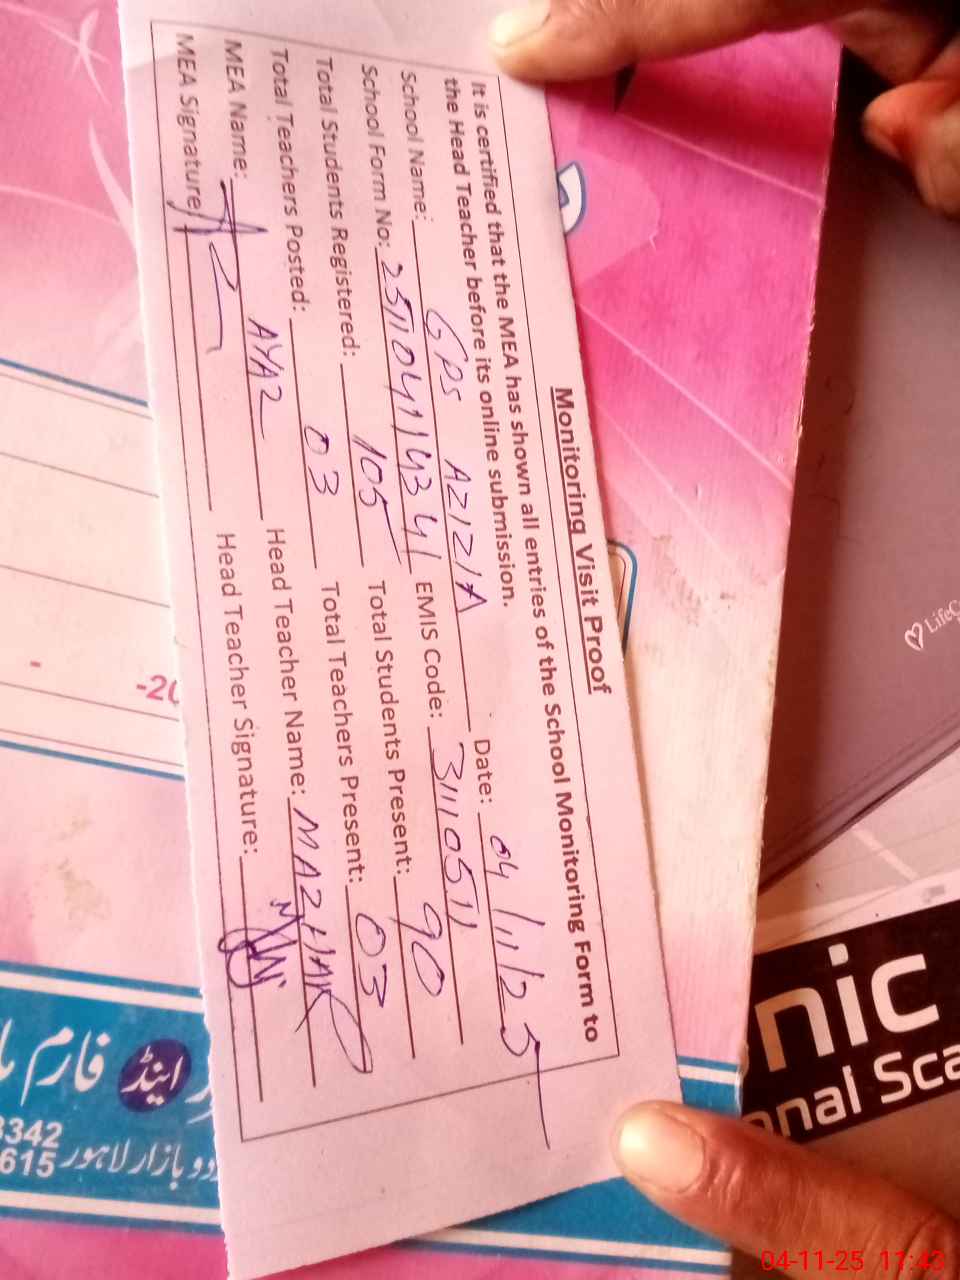 Monitoring Visit Proof
It is certified that the MEA has shown all entries of the School Monitoring Form to
the Head Teacher before its online submission.
Date: 04/11/25
School Name: GPS AZIZIA
School Form No: 25110411 4341 EMIS Code: 31110511
Total Students Registered: 105 Total Students Present: 90
Total Teachers Posted: 03 Total Teachers Present: 03
MEA Name: AYAZ Head Teacher Name: MAZHAR
MEA Signature Head Teacher Signature:
-20
LifeC
nic
onal Sca
فارم
اینڈ
3342
615
بازار لاہور
04-11-25 11:43